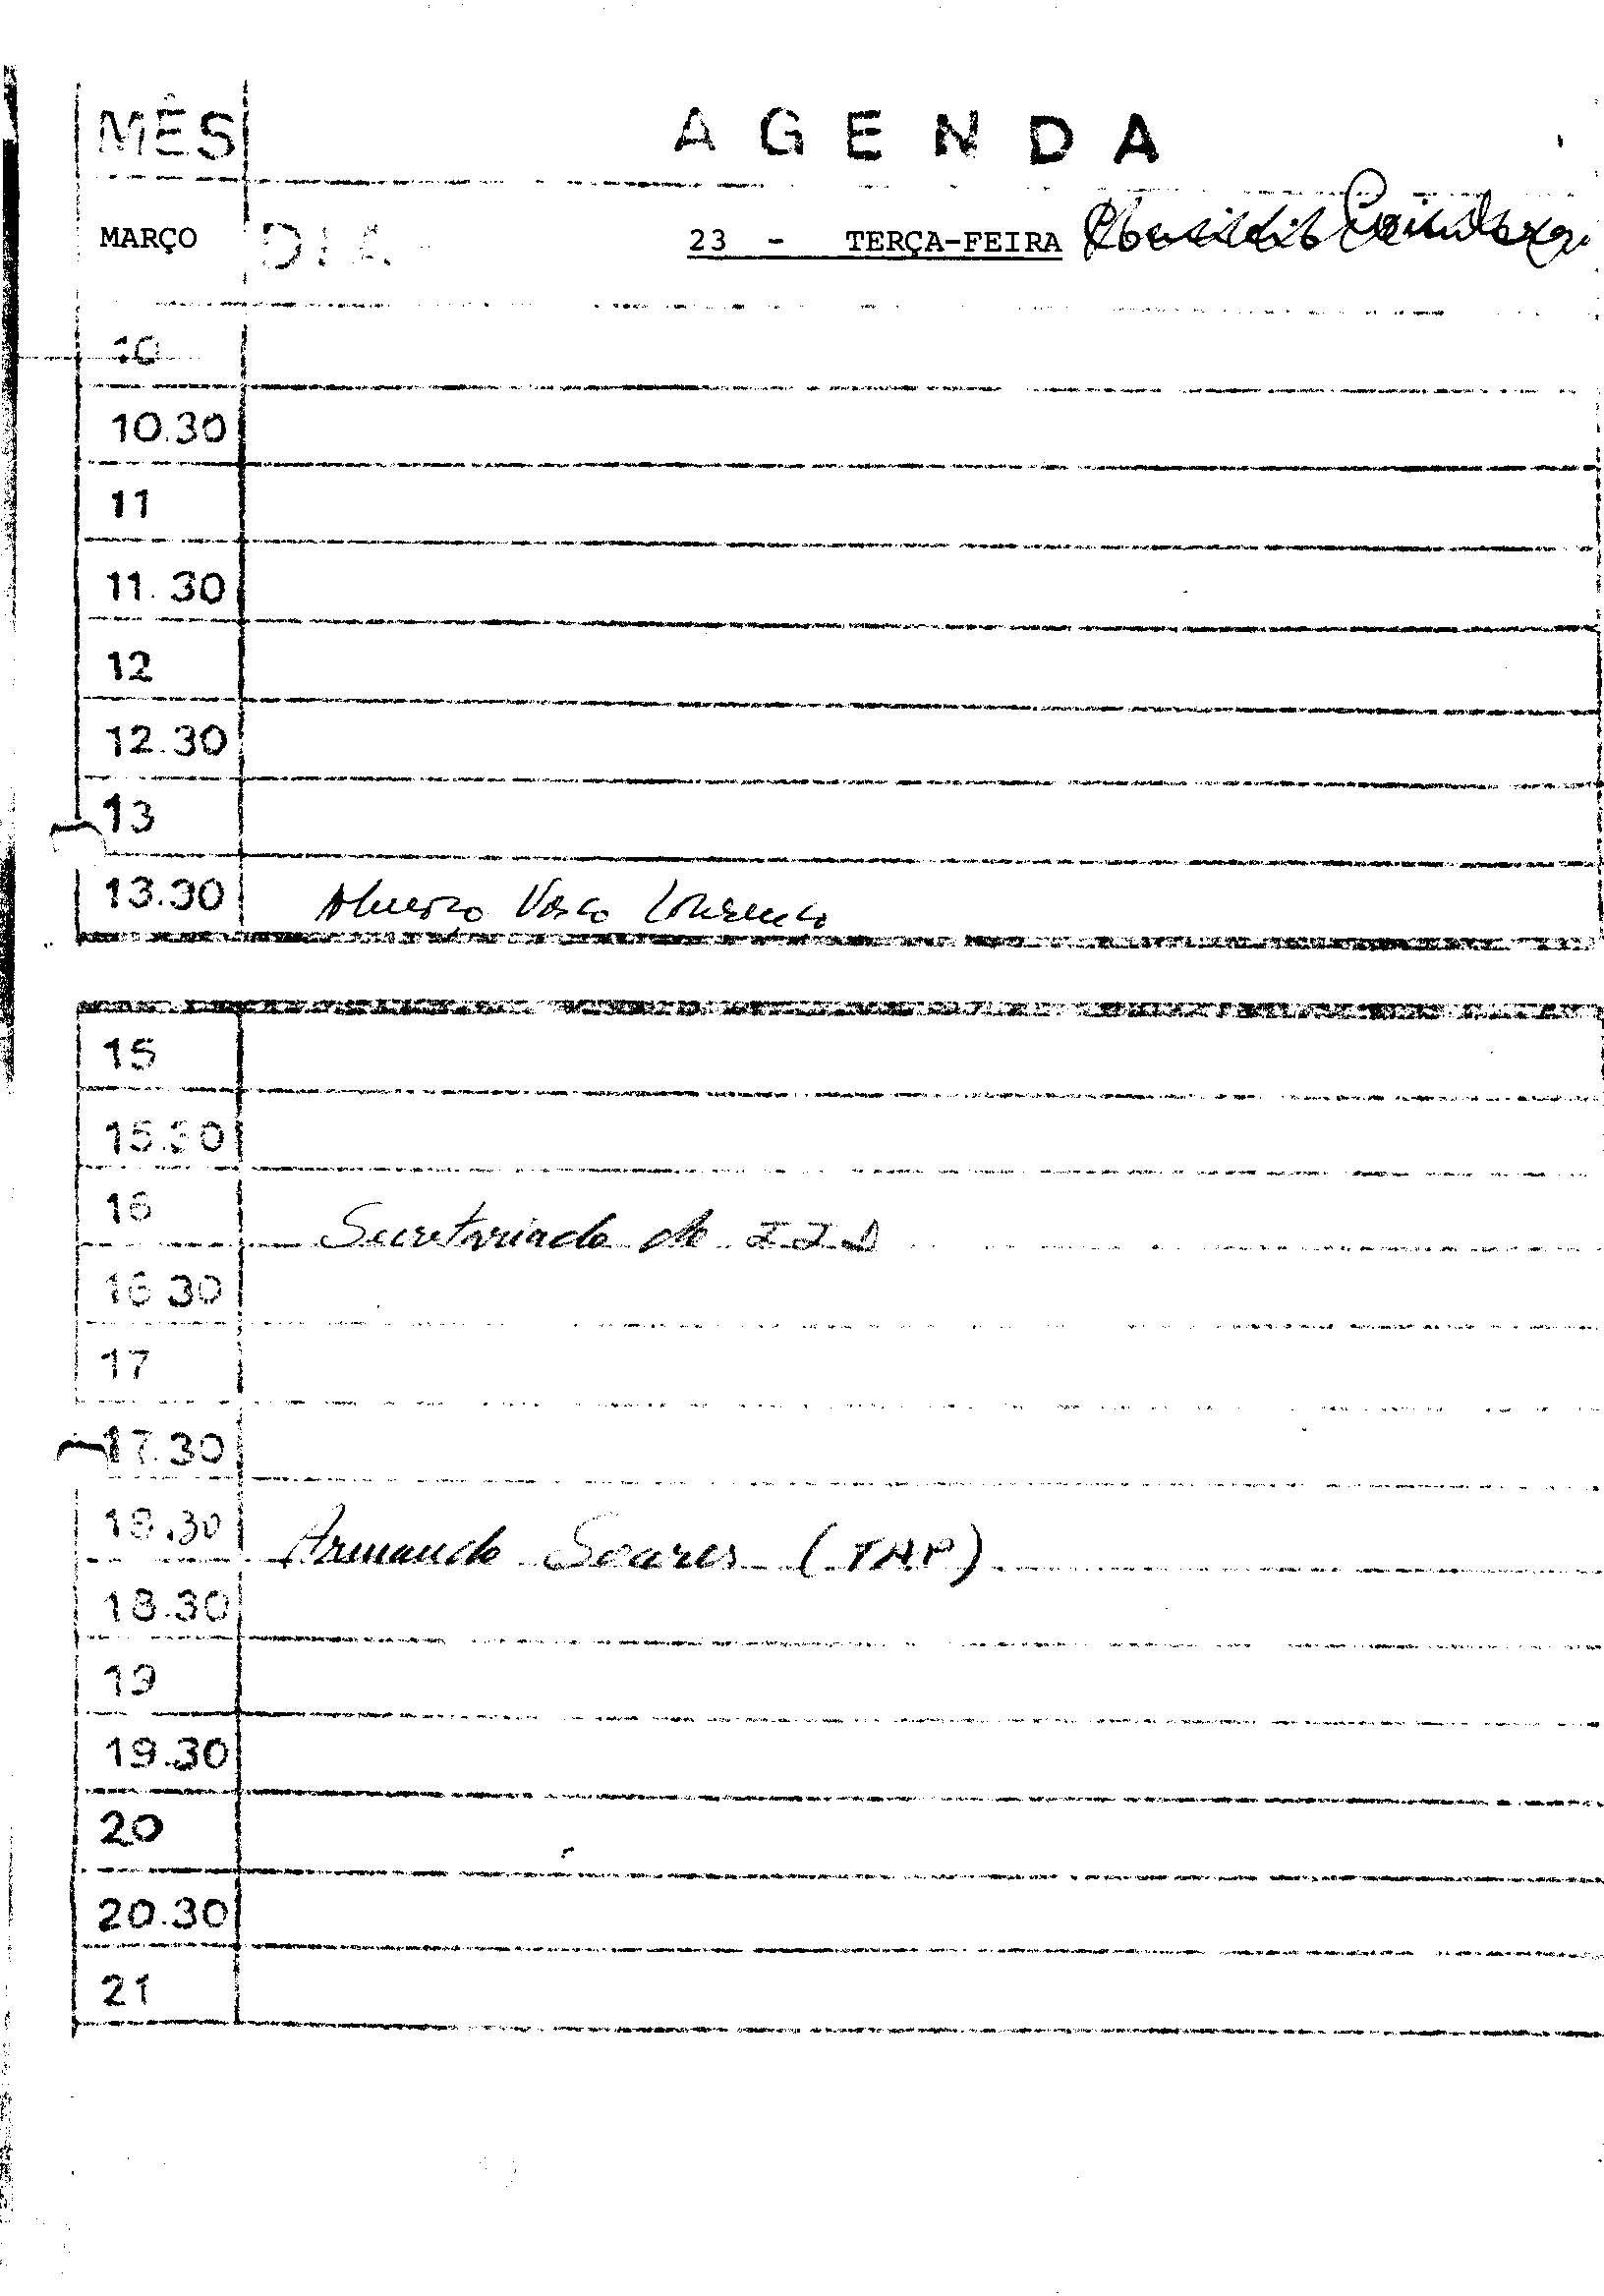 MÊS AGENDA
MARÇO DIA 23 - TERÇA-FEIRA
10
10.30
11
11.30
12
12.30
13
13.30 Almoço Vasco Lourenço
15
15.30
16 Secretariado
16 30
17
17.30
18.30 Armando Soares (TAP)
18.30
19
19.30
20
20.30
21